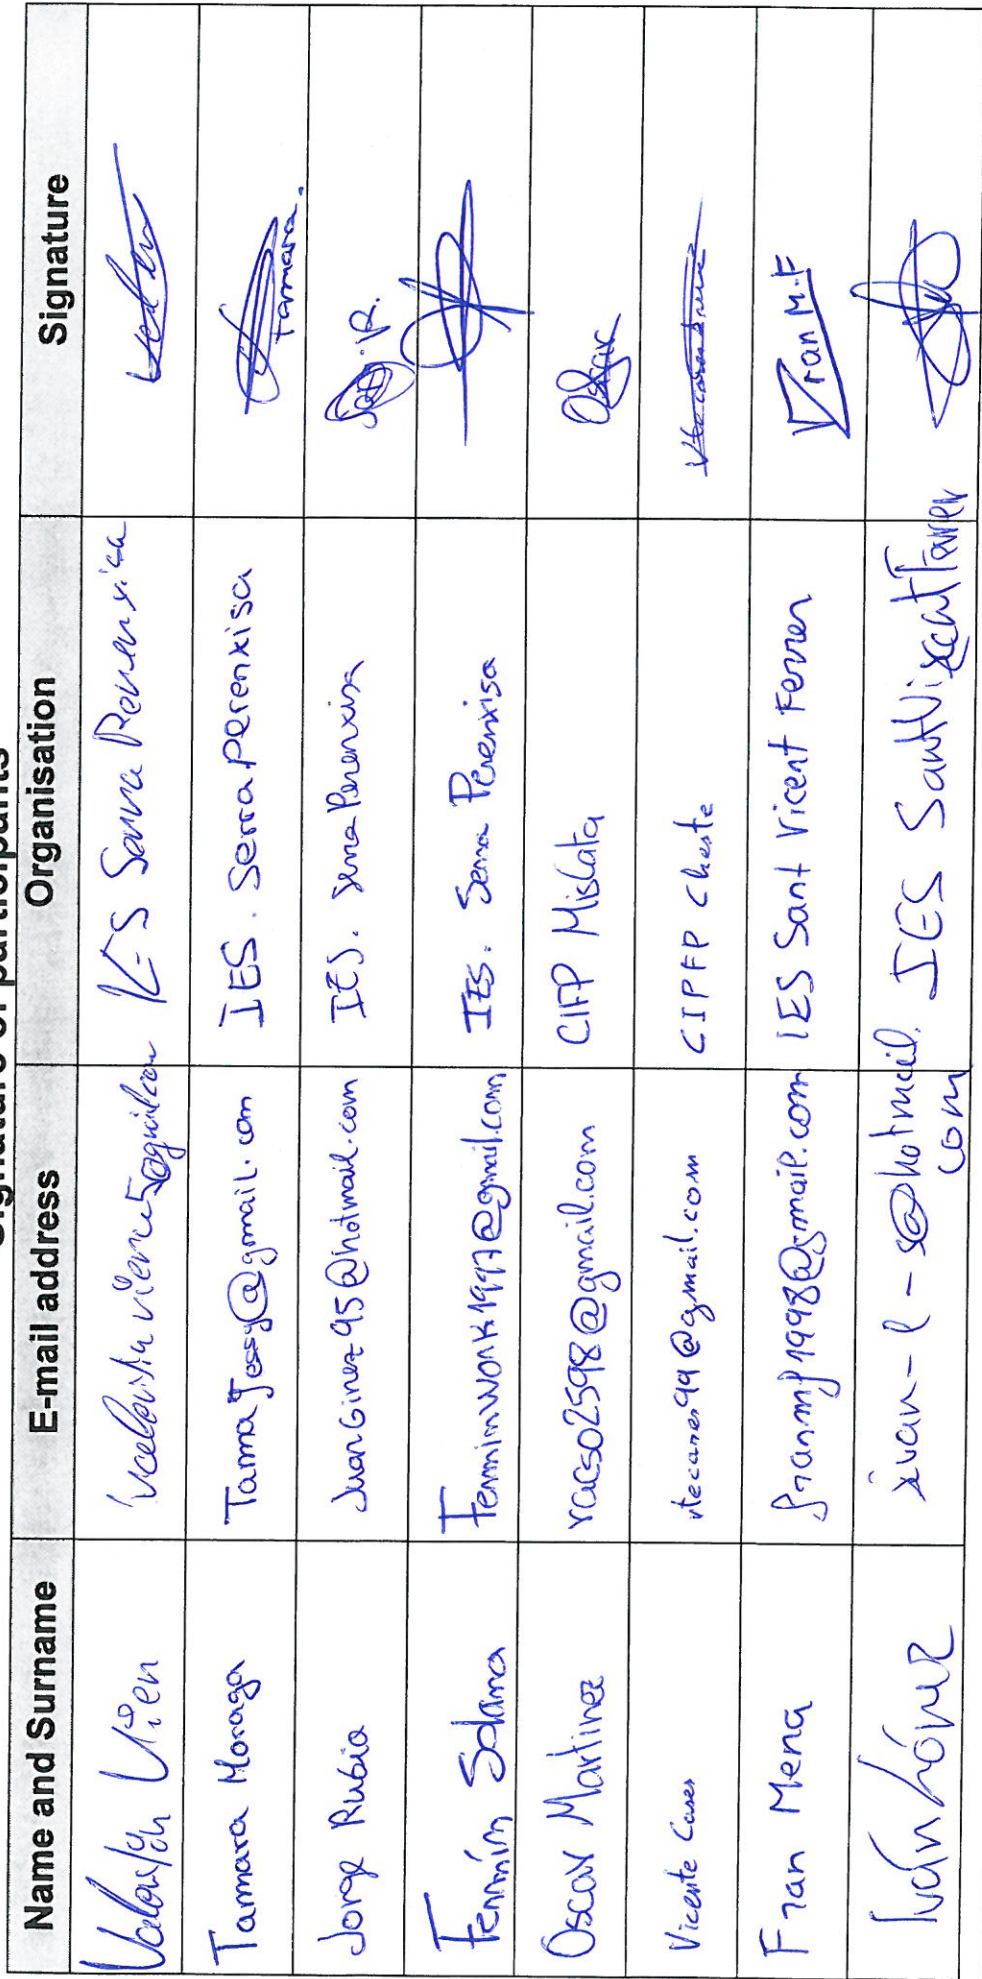 Signature of participants
Name and Surname E-mail address Organisation Signature
IES Serra Perenxisa
Tamara Moraga TamaJessy@gmail.com IES. Serra perenxisa Tamara.
Jorge Rubio JuanGinez95@hotmail.com IES. Serra Perenxisa J.R.
Fermín Solana Ferminwork1997@gmail.com IES. Serra Perenxisa
Oscar Martinez racso2598@gmail.com CIFP Mislata Oscar
Vicente Cases vtecases99@gmail.com CIPFP Cheste
Fran Mena franmf1998@gmail.com IES Sant Vicent Ferrer Fran M.F
Iván López ivan-l-s@hotmail. IES Sant Vicent Ferrer
com